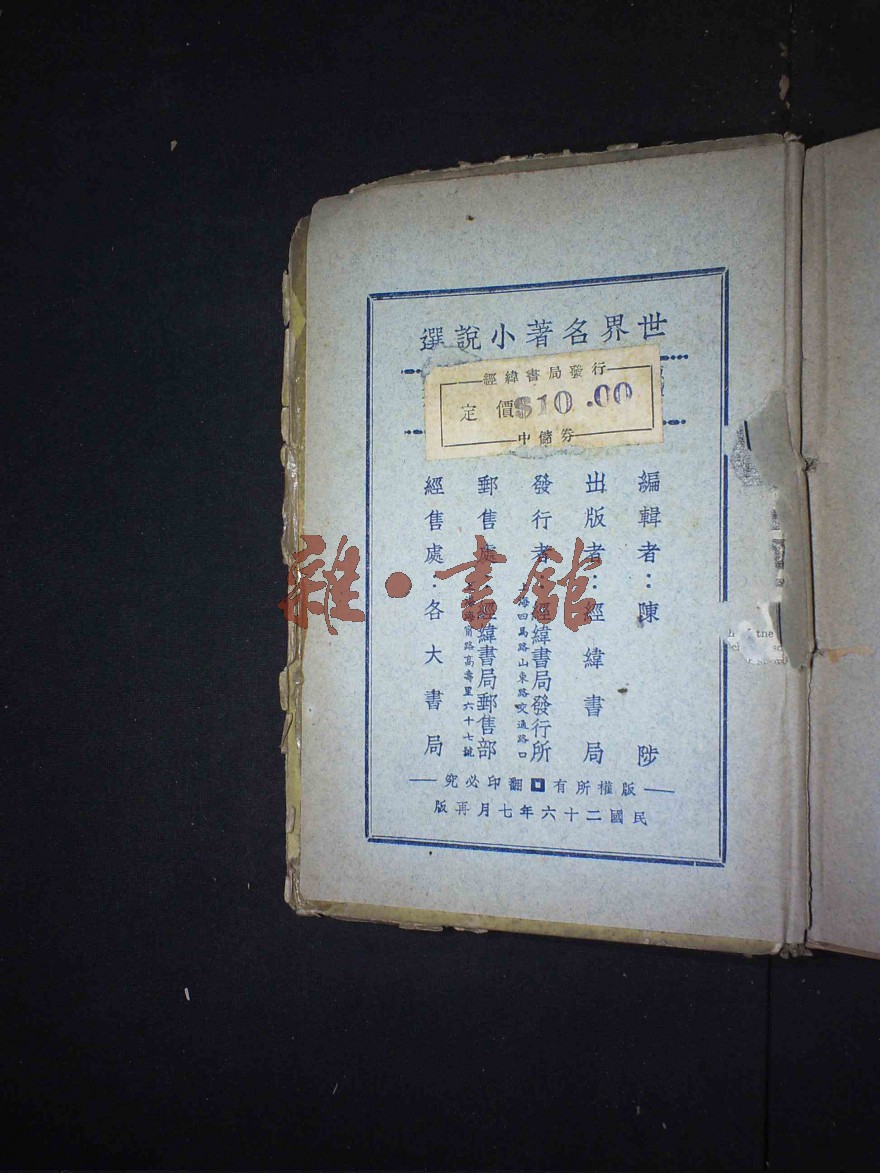 世界名著小說選
經緯書局發行
定價$10.00
中儲券
編輯者：陳陟
出版者：經緯書局
發行者：經緯書局發行所
上海四馬路山東路交通路口
郵售處：經緯書局郵售部
路高壽里六十七號
經售處：各大書局
版權所有翻印必究
民國二十六年七月再版
雜·書館
the